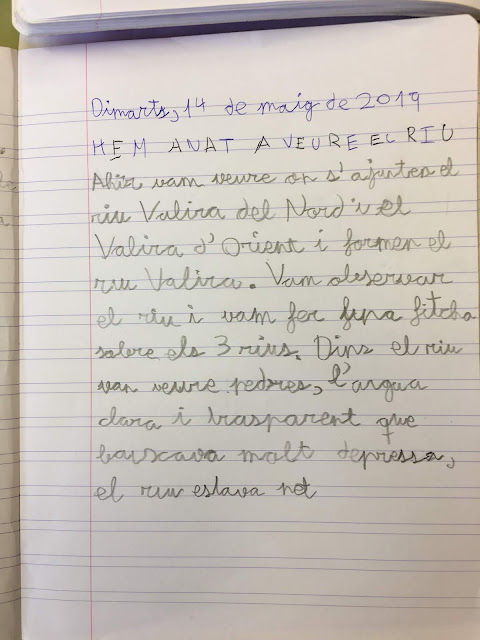 Dimarts, 14 de maig de 2019
HEM ANAT A VEURE EL RIU
Ahir vam veure on s'ajunten el
riu Valira del Nord i el
Valira d'Orient i formen el
riu Valira. Vam observar
el riu i vam fer funa fitcha
sobre els 3 rius. Dins el riu
van veure pedres, l'aigua
clara i trasparent que
baixava molt depressa,
el riu estava net